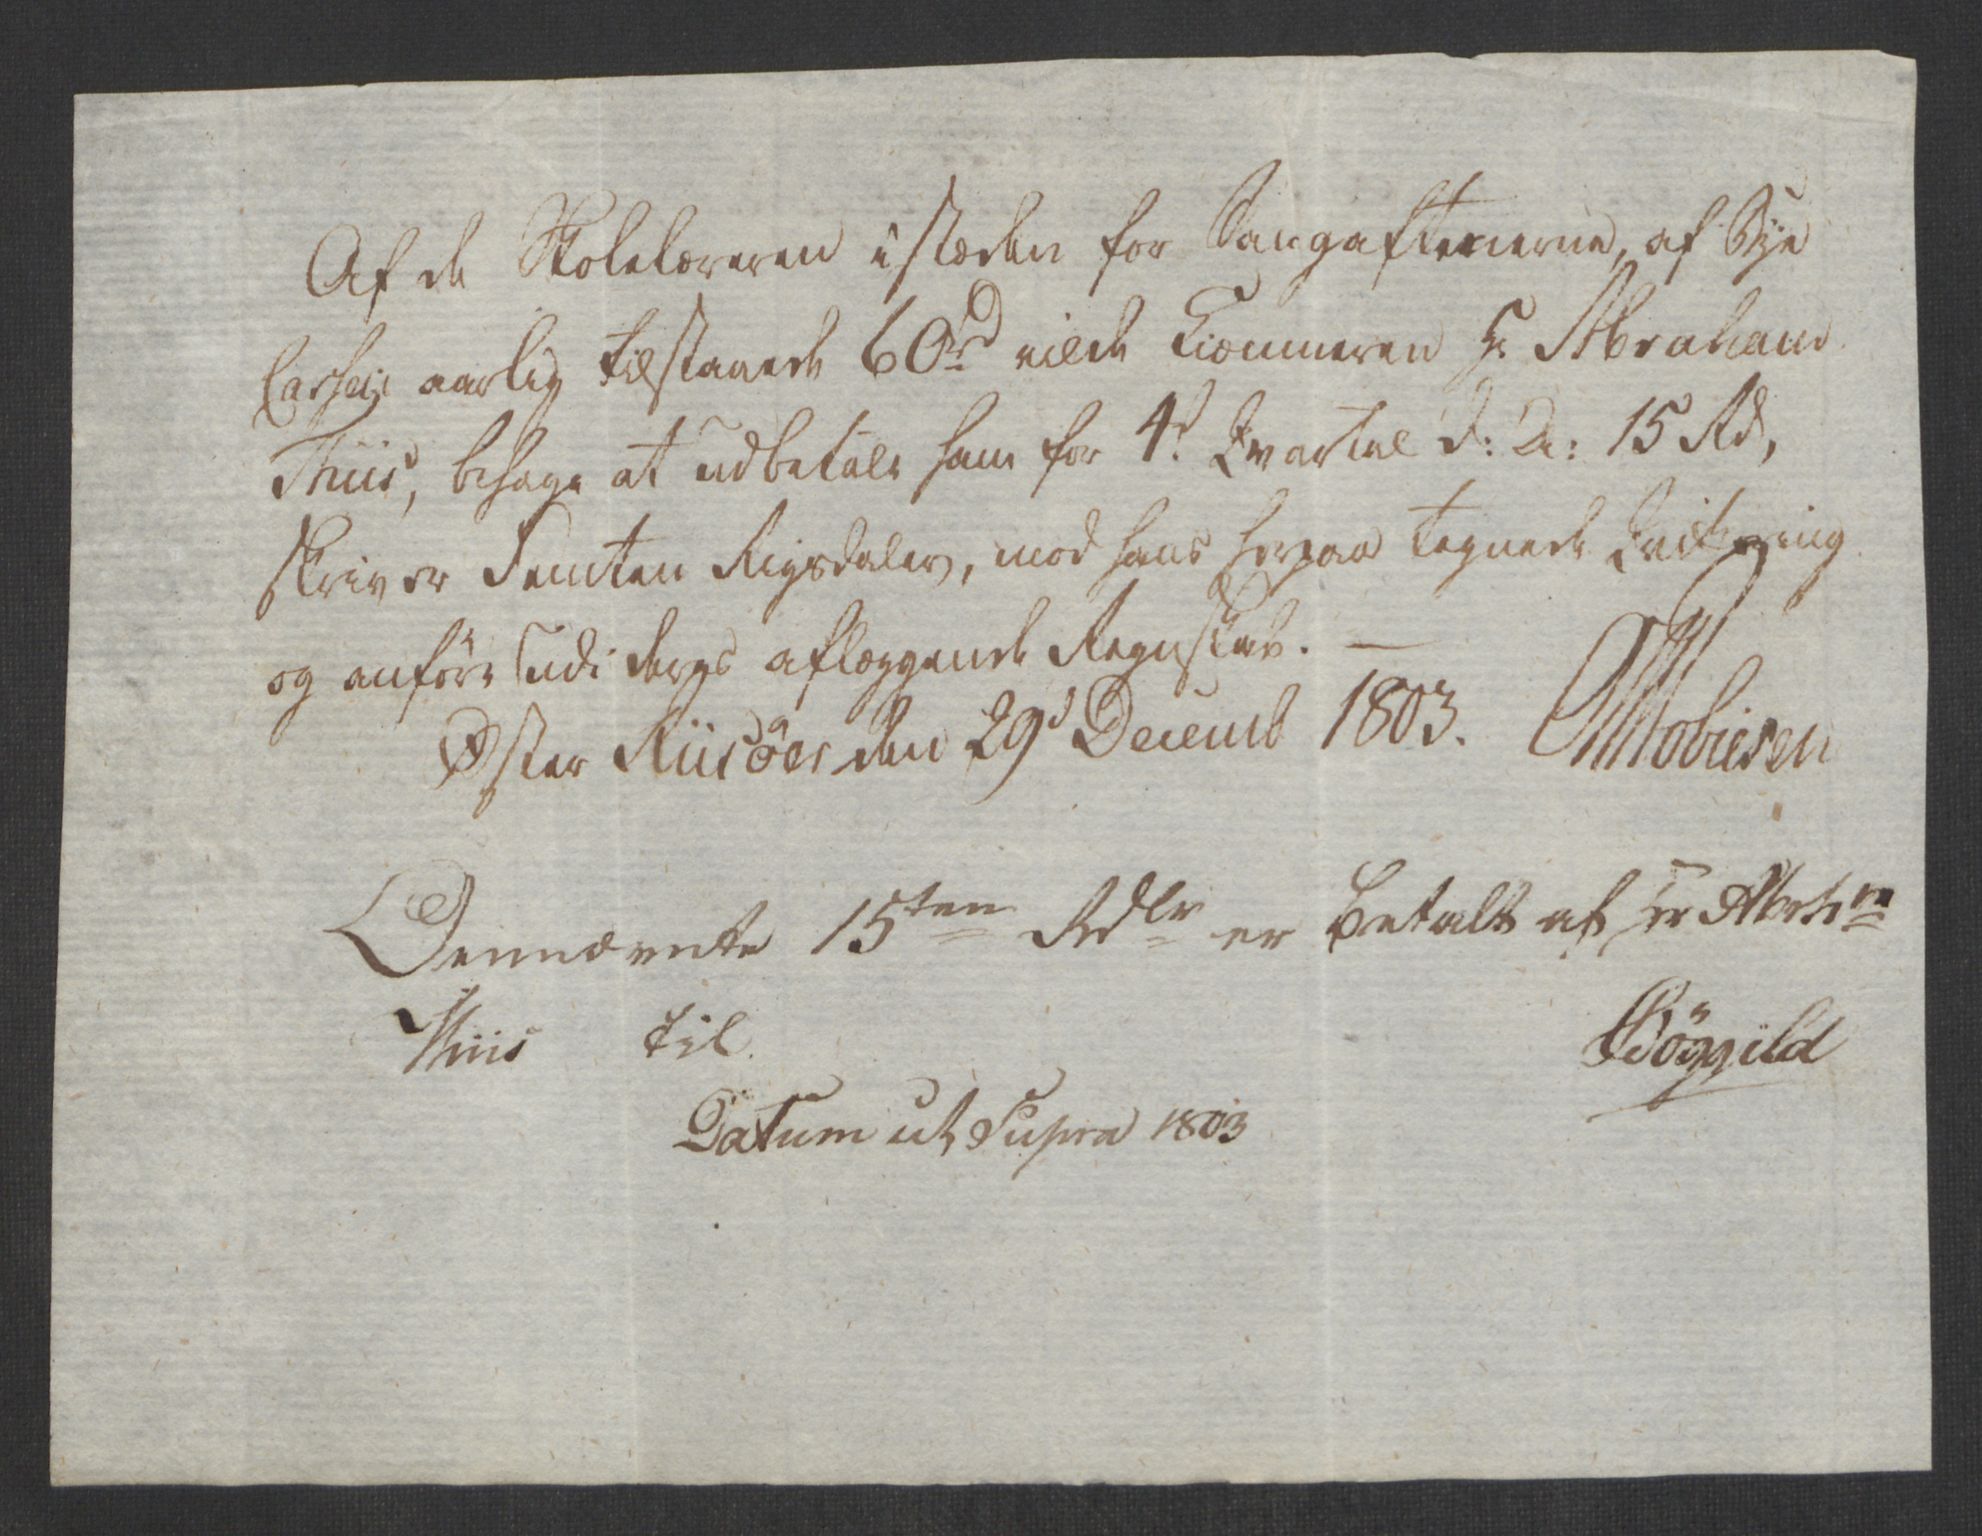 Af de Skolelæreren istæden for Sangaftenerne, af Bye
Cassen aarlig tilstaaede 60 rd vilde Kiemmeren Hr Abraham
Thiis, behage at udbetale ham for 4d Qvartal d: A: 15 Rd,
skriver Femten Rigsdaler, mod hans herpaa tegnede Qvitering
og anføre udi deres aflæggende Regnskab. —
Øster Riisöer den 29d Decemb 1803. Mobiesen
Bennævnte 15ten Rdlr er betalt af Hr Abrhm
Thiis til Böggild
Datum ut Supra 1803